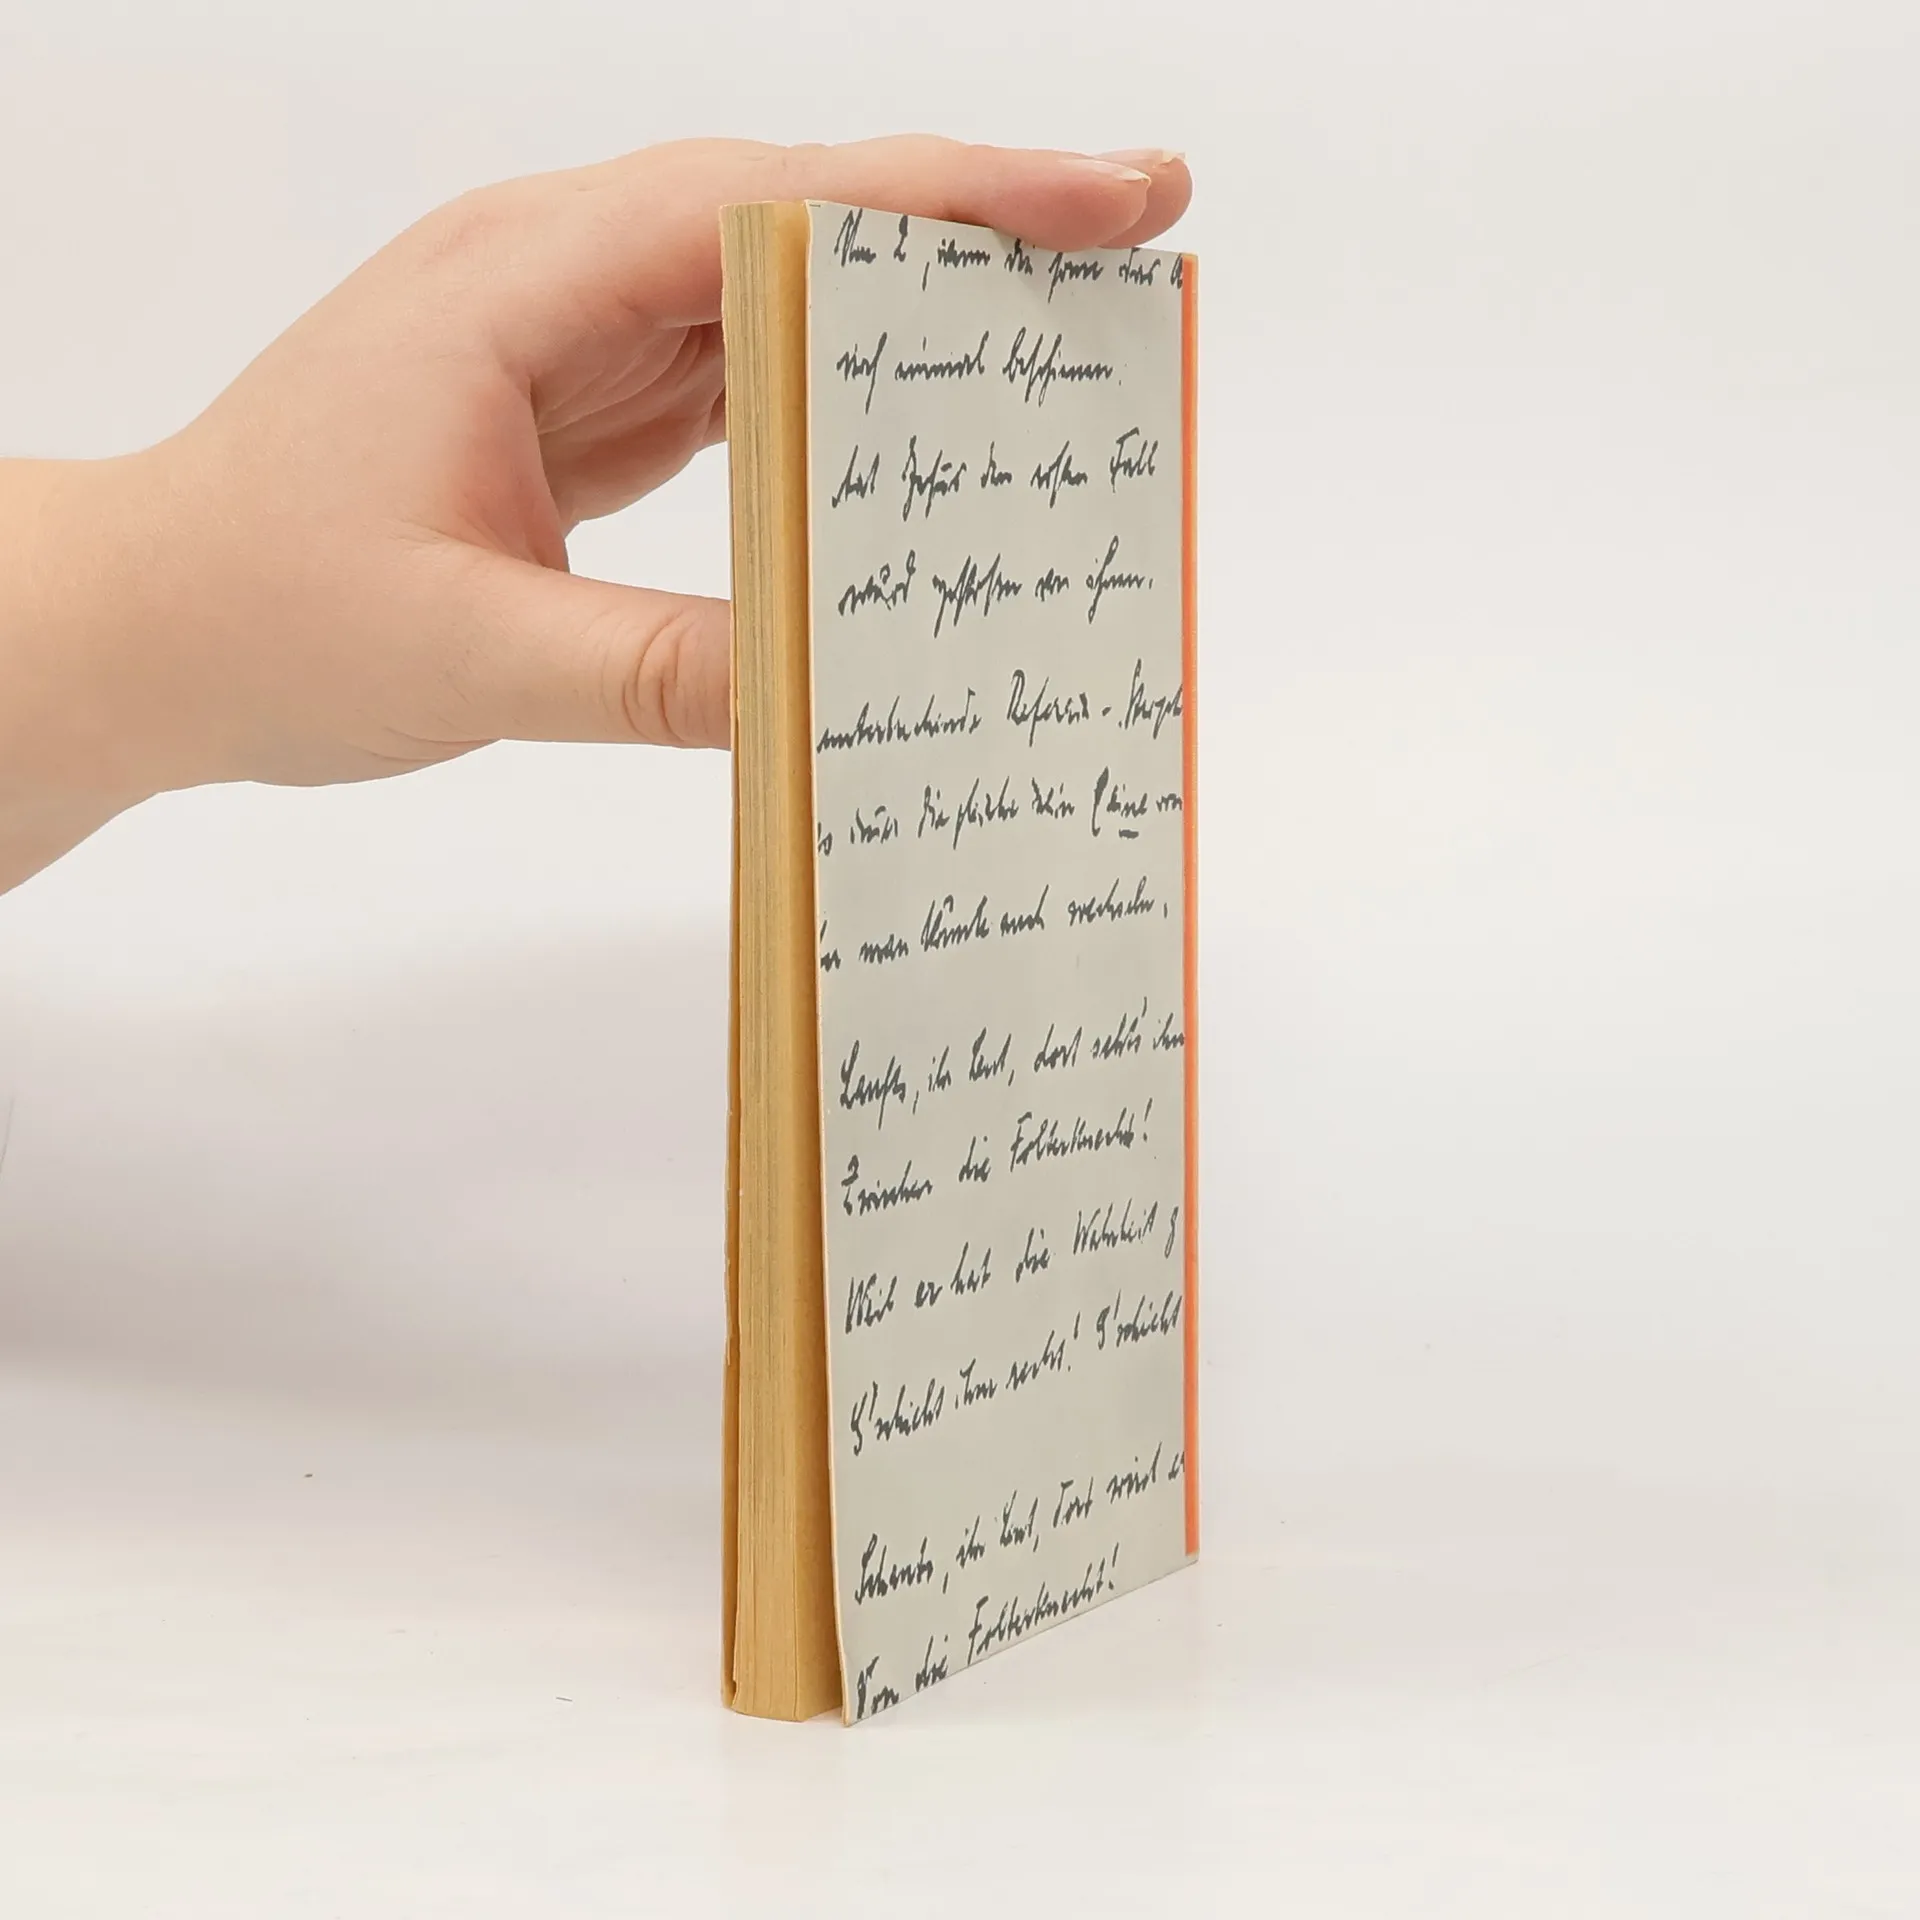 Um 2, wenn die Sonn das A
noch einmal beschienen.
hat Jesus den ersten Fall
wurd gestoßen von ihnen.
unterbrechende Refrain -
die gleiche sein (eine von
man könnte auch wechseln.
Laufts, ihr Leut, dort sehts ihn
Zwischen die Folterknecht!
Weil er hat die Wahrheit g
G'schicht ihm recht! G'schicht
Schauts, ihr Leut, dort wird er
Von die Folterknecht!